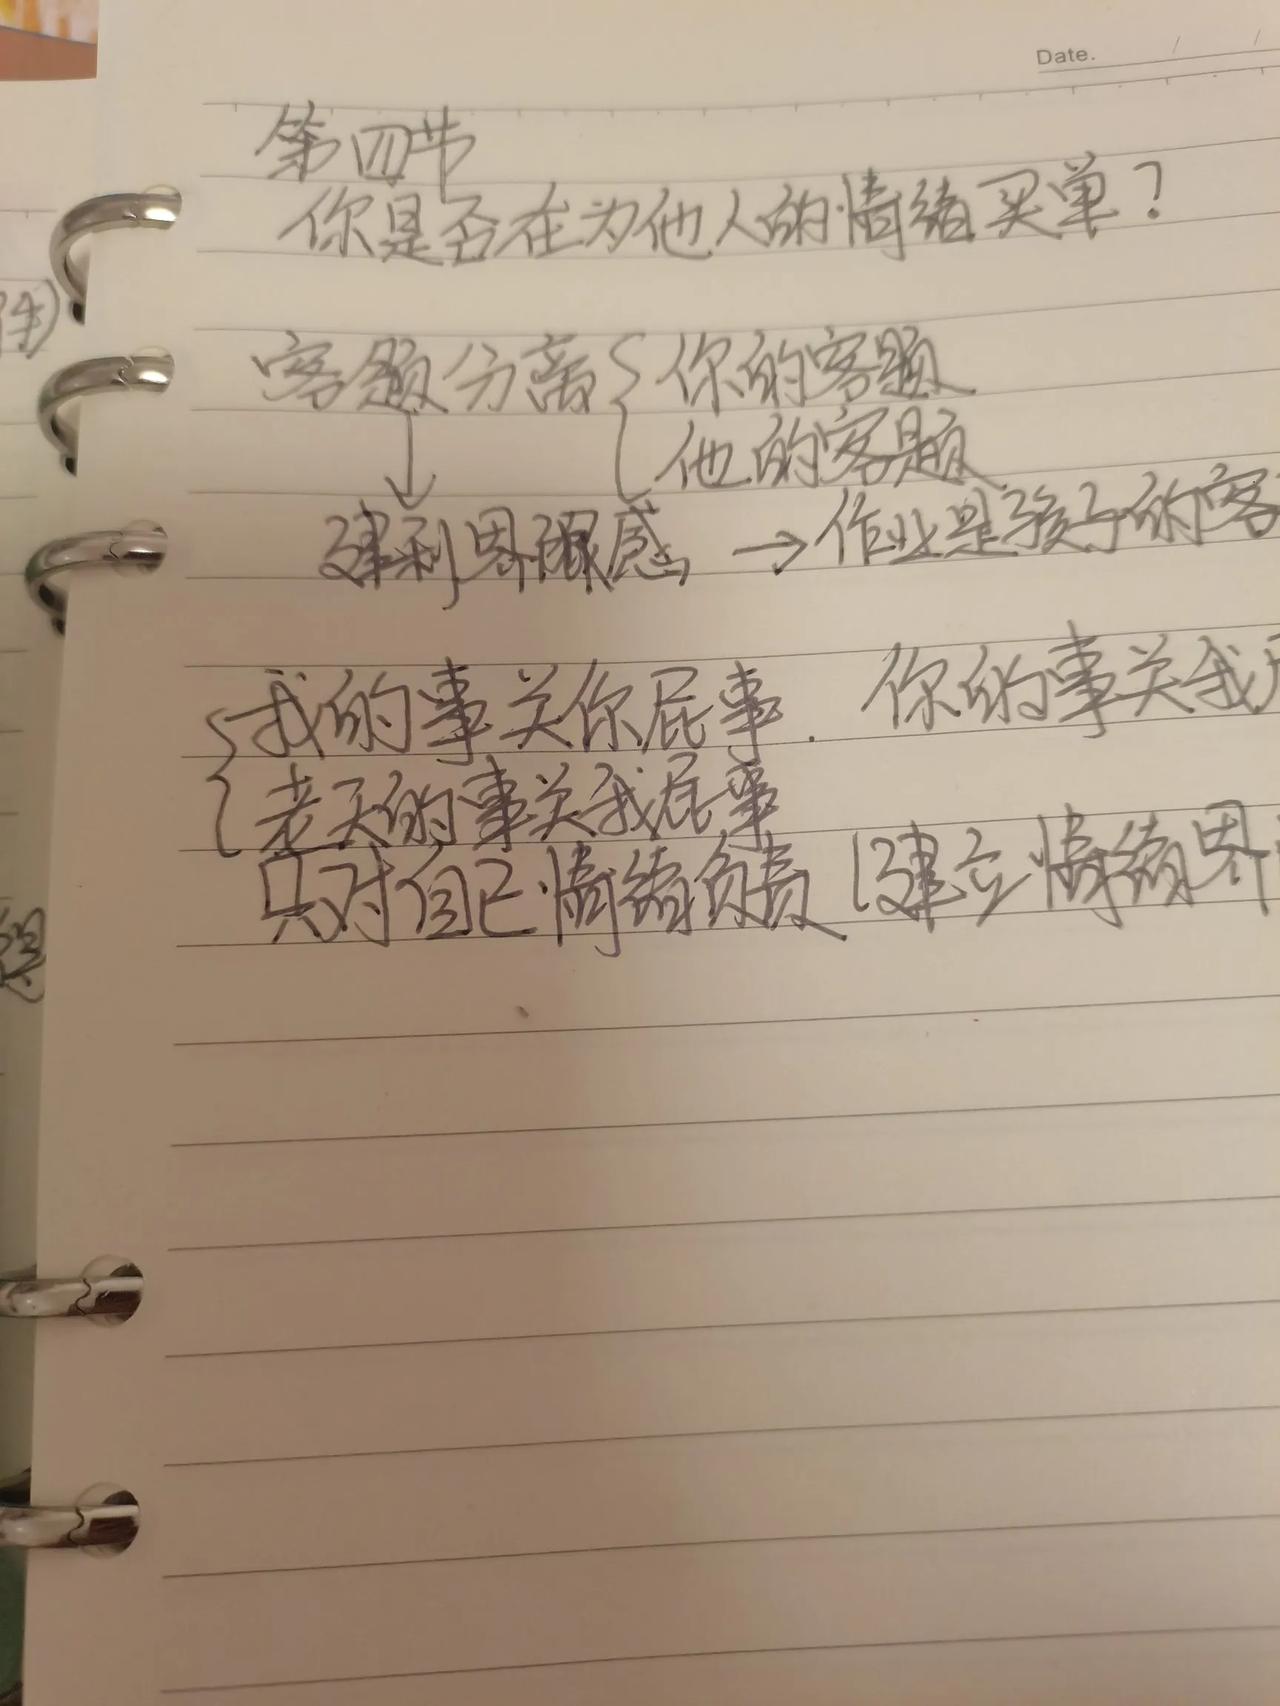 Date. / /
第四节
你是否在为他人的情绪买单?
客题分离{你的客题
他的客题
建利界限感 → 作业是孩子的客
我的事关你屁事. 你的事关我
老天的事关我屁事
只对自己情绪负责 建立情绪界